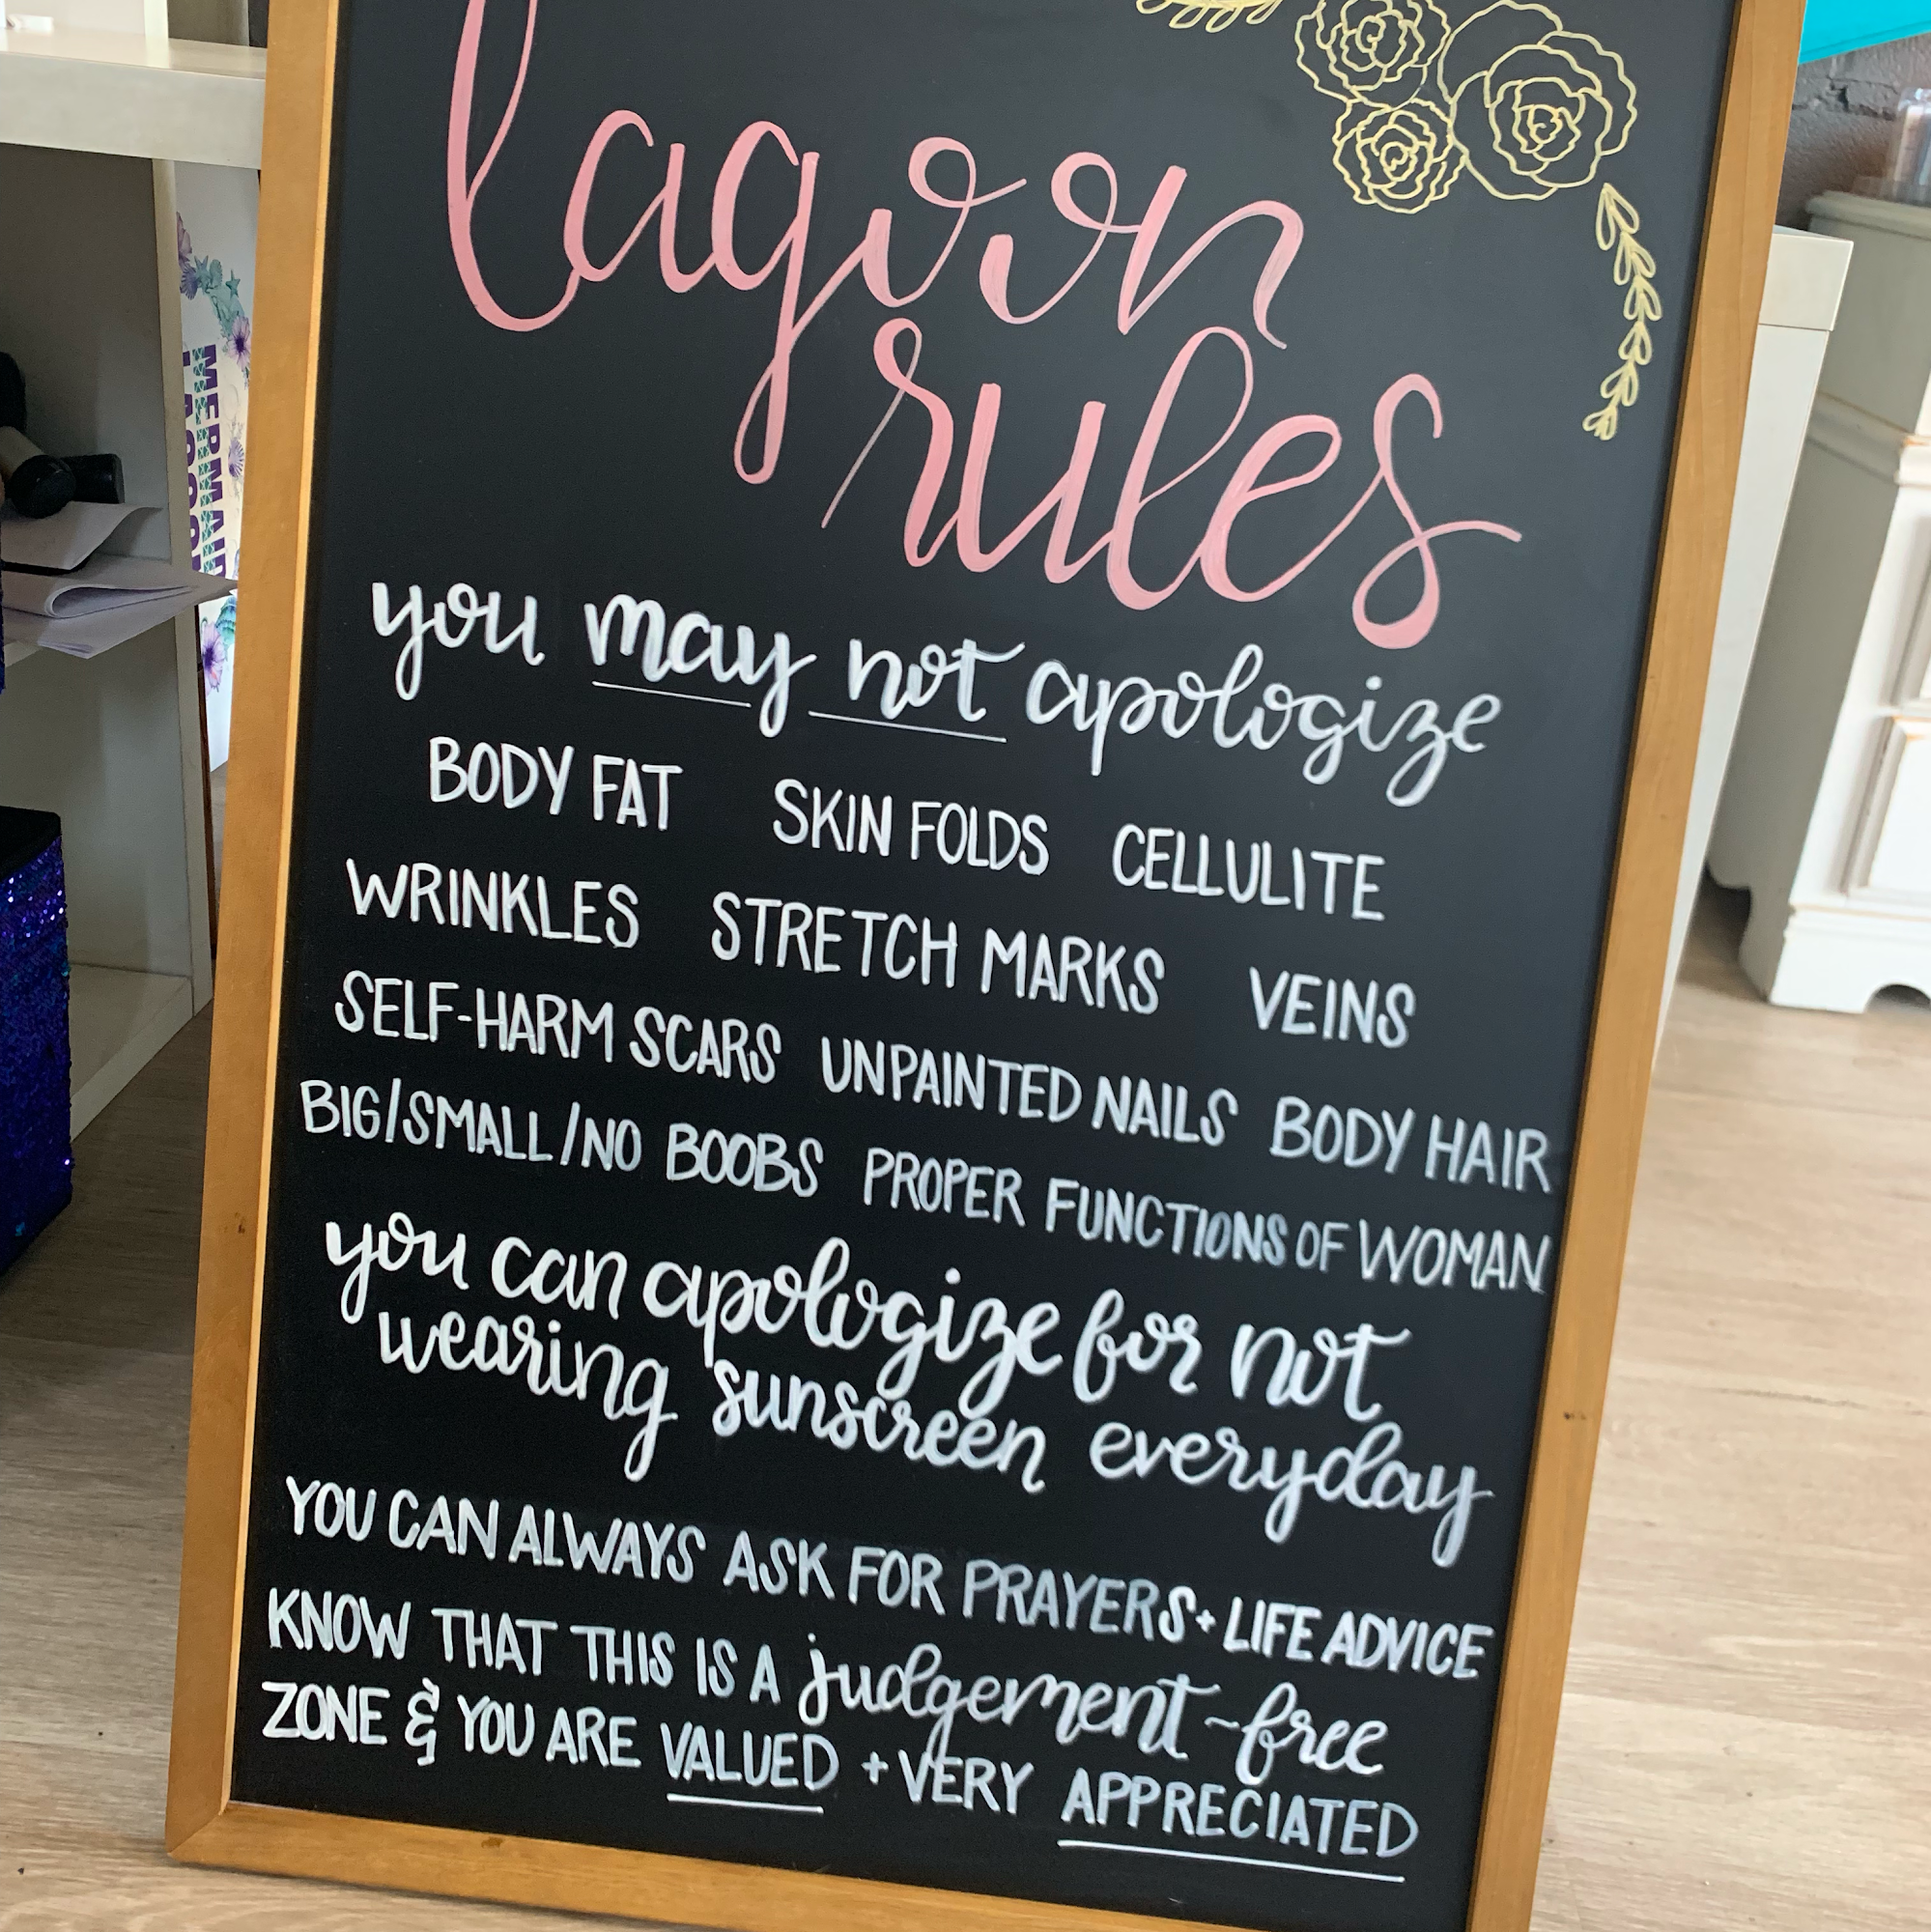 lagoon
rules
you may not apologize
BODY FAT SKIN FOLDS CELLULITE
WRINKLES STRETCH MARKS VEINS
SELF-HARM SCARS UNPAINTED NAILS BODY HAIR
BIG/SMALL/NO BOOBS PROPER FUNCTIONS OF WOMAN
you can apologize for not
wearing sunscreen everyday
YOU CAN ALWAYS ASK FOR PRAYERS + LIFE ADVICE
KNOW THAT THIS IS A judgement-free
ZONE & YOU ARE VALUED + VERY APPRECIATED
MERMAID